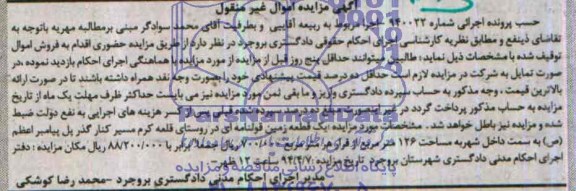 آگهی مزایده اموال غیر منقول
حسب پرونده اجرائی شماره ۹۴۰۰۲۲ مربوط به ربیعه آقایی و بطرفیت آقای محمد سوادگر مبنی برمطالبه مهریه باتوجه به
تقاضای ذینفع و مطابق نظریه کارشناسی اجرای احکام حقوقی دادگستری بروجرد در نظر دارد از طریق مزایده حضوری اقدام به فروش اموال
توقیف شده با مشخصات ذیل نماید: طالبین میتوانند حداقل پنج روز قبل از مزایده از مورد مزایده با هماهنگی اجرای احکام بازدید نموده ،در
صورت تمایل به شرکت در مزایده لازم است حداقل ده درصد قیمت پیشنهادی خود را بصورت وجه نقد همراه داشته باشند تا در صورت ارائه
بالاترین قیمت ، وجه مذکور به حساب سپرده دادگستری واریز و ما بقی ثمن مورد مزایده نیز می بایست حداکثر ظرف مهلت یک ماه از تاریخ
مزایده به حساب مذکور پرداخت گردد در غیر اینصورت سپرده ده درصد قبلی پس از کسر هزینه های اجرایی به نفع دولت ضبط
شده و مزایده نیز باطل خواهد شد. مشخصات مورد مزایده :یک قطعه زمین قولنامه ای در روستای قلعه کرم مسیر کنار گذر پل پیامبر اعظم
(ص) به سمت داخل شهربه مساحت ۱۲۶ متر مربع از قرار هر متر مربع ۷۰۰/۰۰۰ ریال جمعا برابر با ۸۸/۲۰۰/۰۰۰ ریال مکان مزایده : دفتر
اجرای احکام مدنی دادگستری شهرستان بروجرد تاریخ مزایده ۹۴/۴/۷ ساعت ۱۲ ظهر
اجرای احکام مدنی دادگستری بروجرد -محمد رضا کوشکی
ParsNamadData
پایگاه اطلاع رسانی مناقصه و مزایده